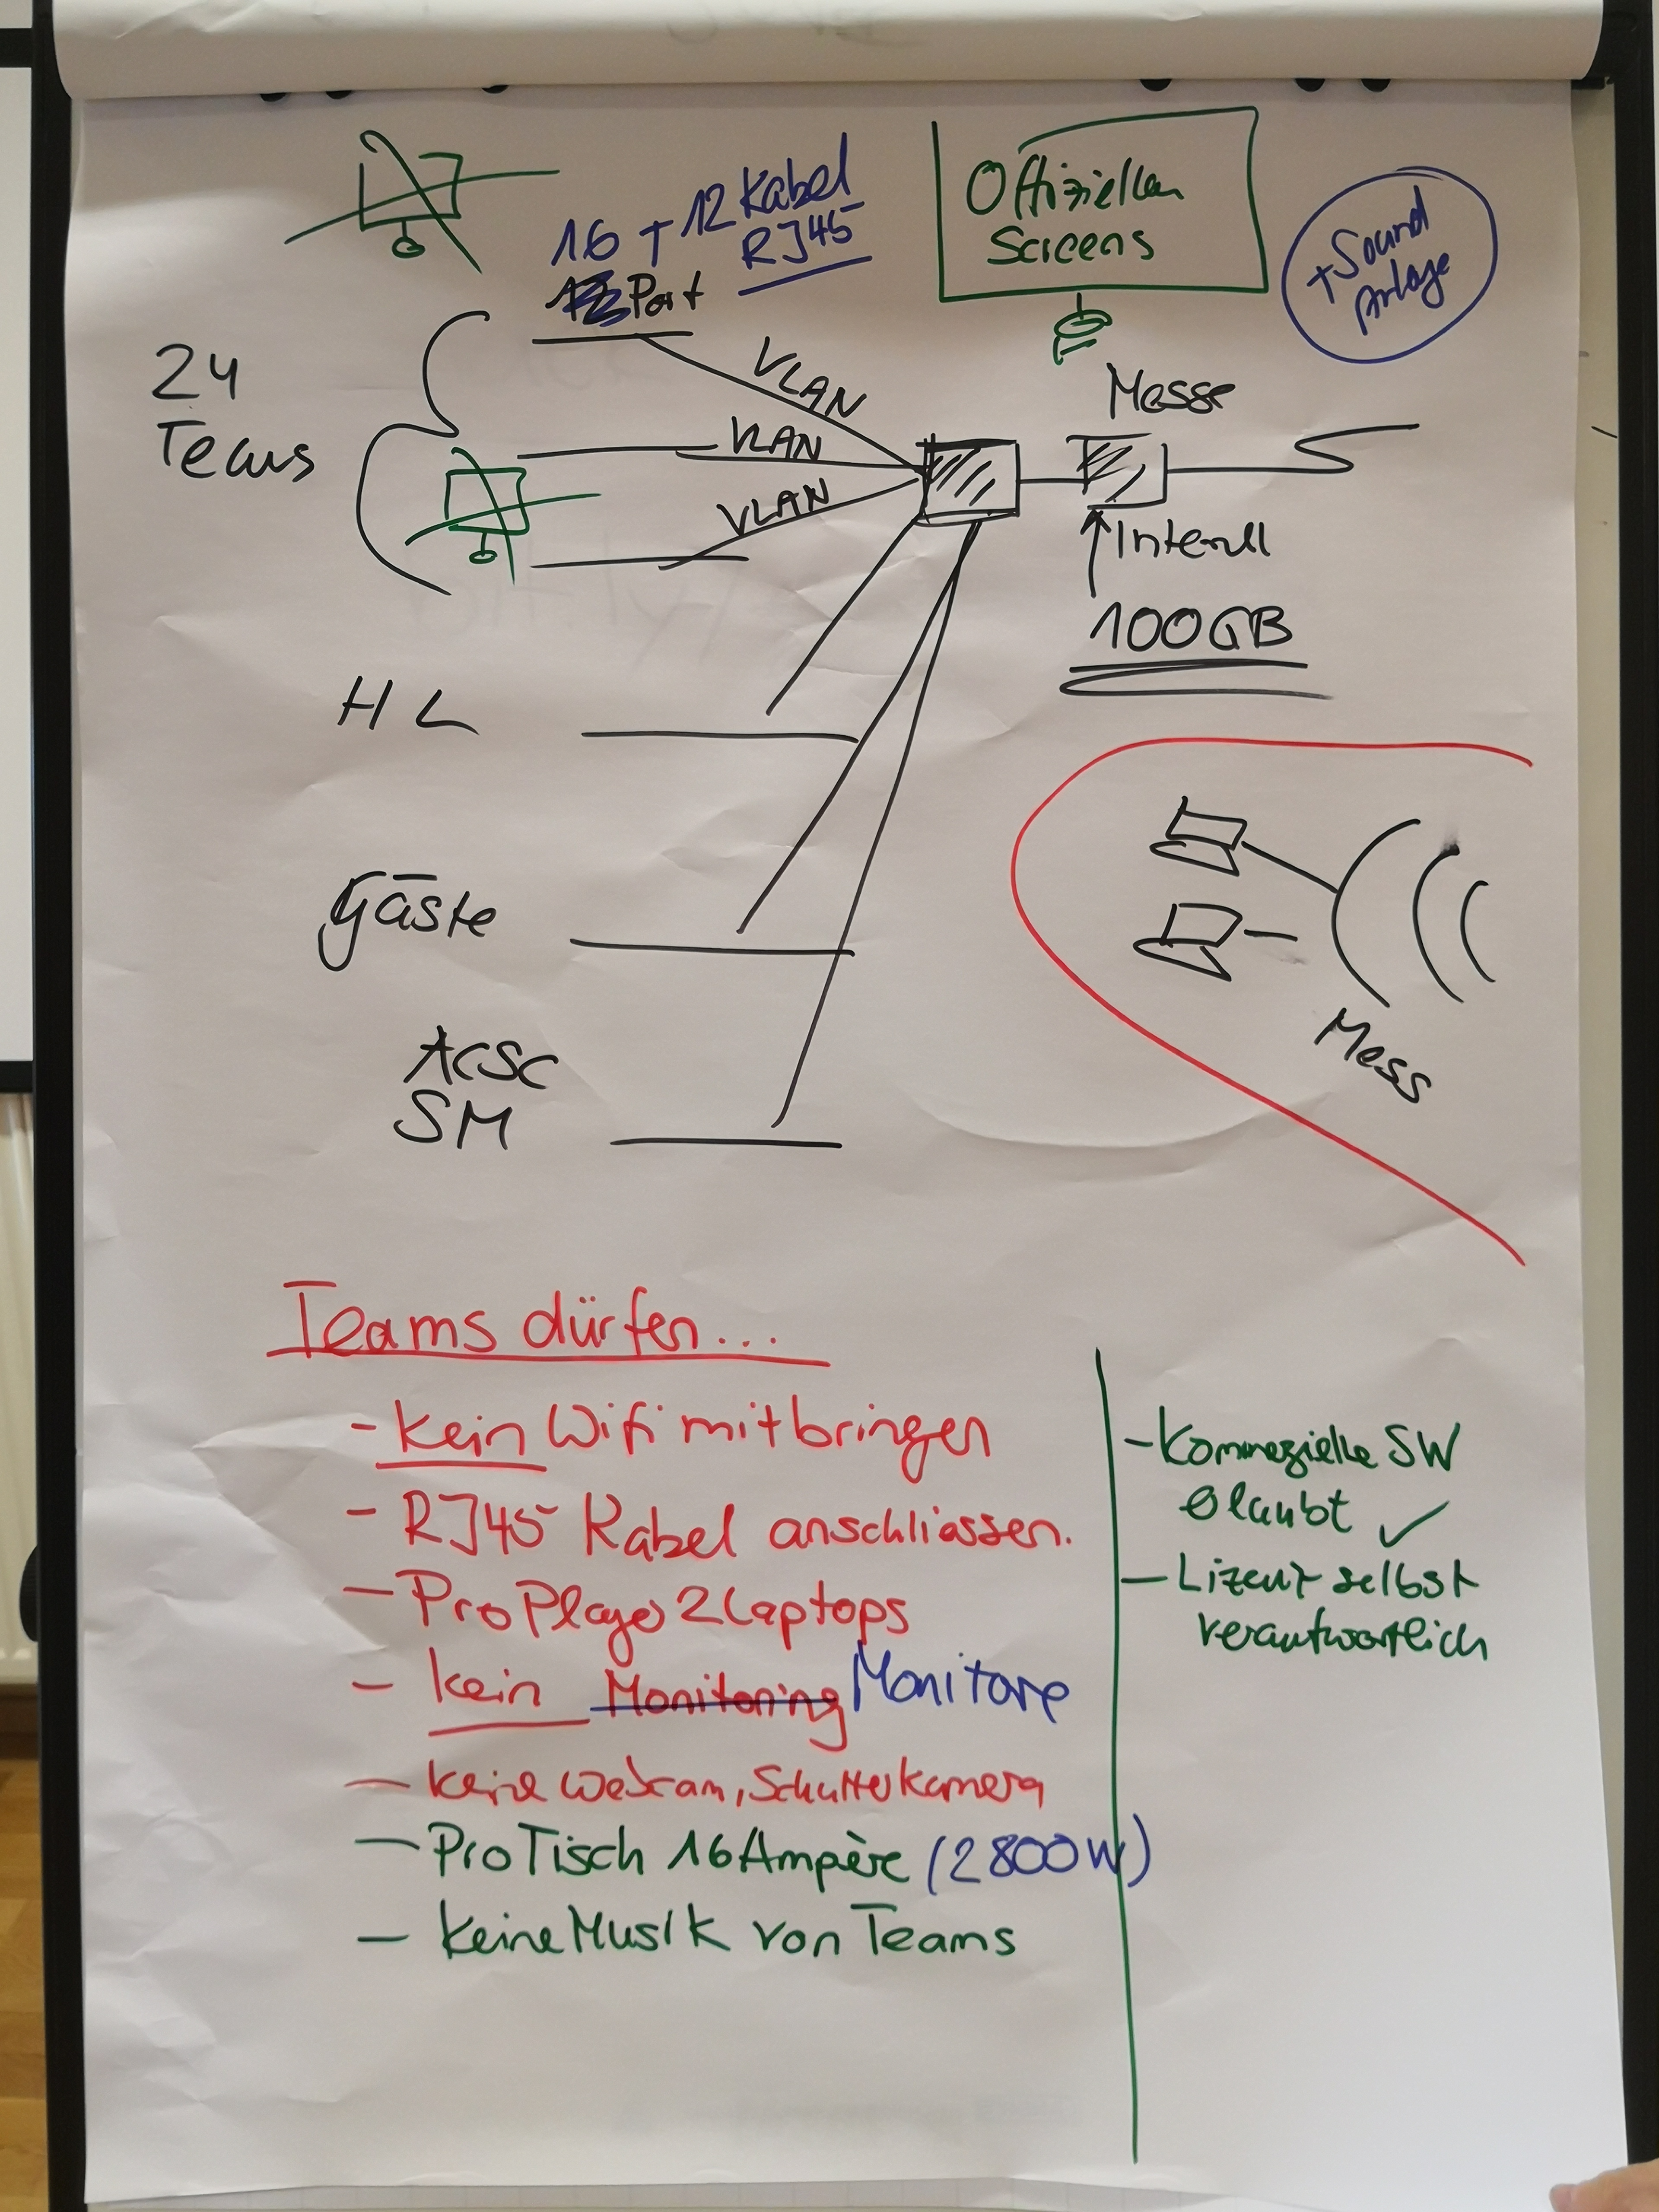 16 + 12 Kabel
RJ45
Port
Offiziellen
Screens
+ Sound
Anlage
24
Teams
VLAN
VLAN
VLAN
Messe
Intern
100GB
HL
Gäste
ACSC
SM
Mess
Teams dürfen...
- kein Wifi mitbringen
- RJ45 Kabel anschliessen.
- Pro Player 2 Laptops
- kein Monitoring Monitore
- keine Webcam, Schulterkamera
- Pro Tisch 16 Ampère (2800W)
- keine Musik von Teams
- Kommezielle SW
erlaubt ✓
- Lizenz selbst
verantwortlich